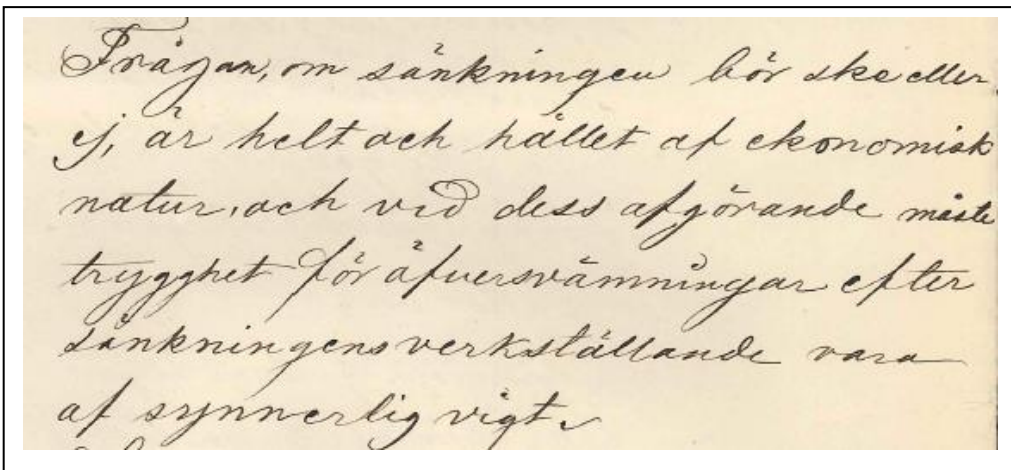 Frågan, om sänkningen bör ske eller
ej, är helt och hållet af ekonomisk
natur, och vid dess afgörande måste
trygghet för öfversvämningar efter
sänkningens verkställande vara
af synnerlig vigt.